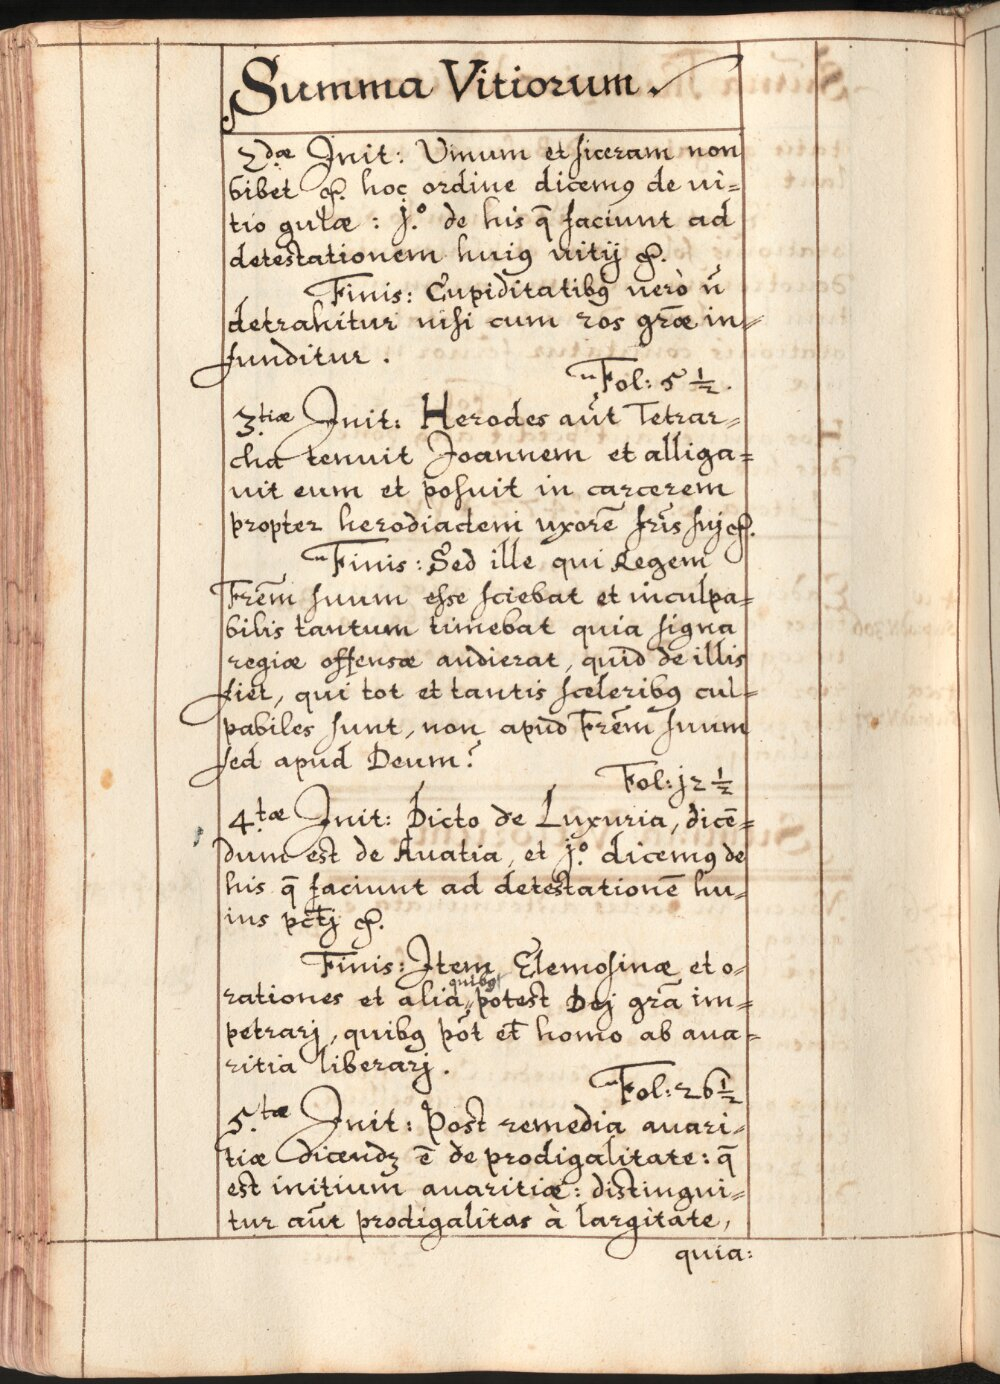 Summa Vitiorum.
2.dæ Init: Vinum et siceram non
bibet &. hoc ordine dicemꝰ de vi=
tio gulæ : j.º de his q̄ faciunt ad
detestationem huiꝰ vitij &.
Finis: Cupiditatibꝰ verò ñ
detrahitur nisi cum ros grãe in=
funditur.
Fol: 5 ½.
3.tiæ Init: Herodes aũt Tetrar=
cha tenuit Joannem et alliga=
vit eum et posuit in carcerem
propter herodiadem uxorẽ frĩs suj &.
Finis: Sed ille qui Regem
Frẽm suum esse sciebat et inculpa=
bilis tantum timebat quia signa
regiæ offensæ audierat, quid de illis
fiet, qui tot et tantis sceleribꝰ cul=
pabiles sunt, non apud Frẽm suum
sed apud Deum?
Fol: j2 ½
4.tæ Init: Dicto de Luxuria, dicẽ=
dum est de Avatia, et j.º dicemꝰ de
his q̄ faciunt ad detestationẽ hu=
ius pc̃tj &.
Finis: Item Elemosinæ et o=
rationes et alia quibꝰ potest Dej grã im=
petrarj, quibꝰ põt et̃ homo ab ava=
ritia liberarj.
Fol: 26 ½
5.tæ Init: Post remedia avari=
tiæ dicendꝫ ẽ de prodigalitate: q̄
est initium avaritiæ: distingui=
tur aũt prodigalitas à largitate,
quia: